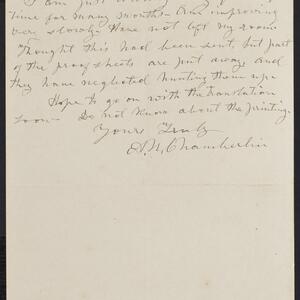 I am just
time for many months - Am improving
very slowly. Have not left my room
Thought this had been sent, but part
of the proof sheets are put away and
they have neglected hunting them up.
Hope to go on with the translation
soon - Do not know about the printing.
Yours Truly
Chamberlin